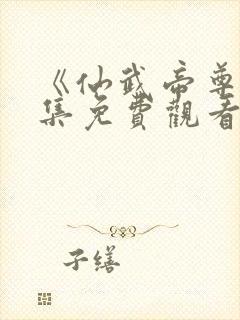 《仙武帝尊
集免費觀看
子缮